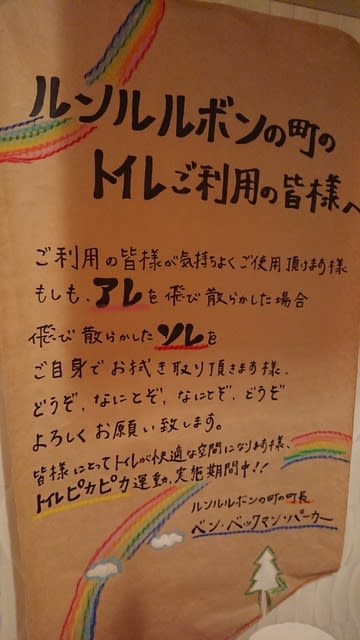 ルンルルボンの町の
トイレご利用の皆様へ
ご利用の皆様が気持ちよくご使用頂けます様
もしも、アレを飛び散らかした場合
飛び散らかしたソレを
ご自身でお拭き取り頂きます様、
どうぞ、なにとぞ、なにとぞ、どうぞ
よろしくお願い致します。
皆様にとってトイレが快適な空間になります様、
トイレピカピカ運動、実施期間中!!
ルンルルボンの町の町長
ベン・ベックマン・パーカー